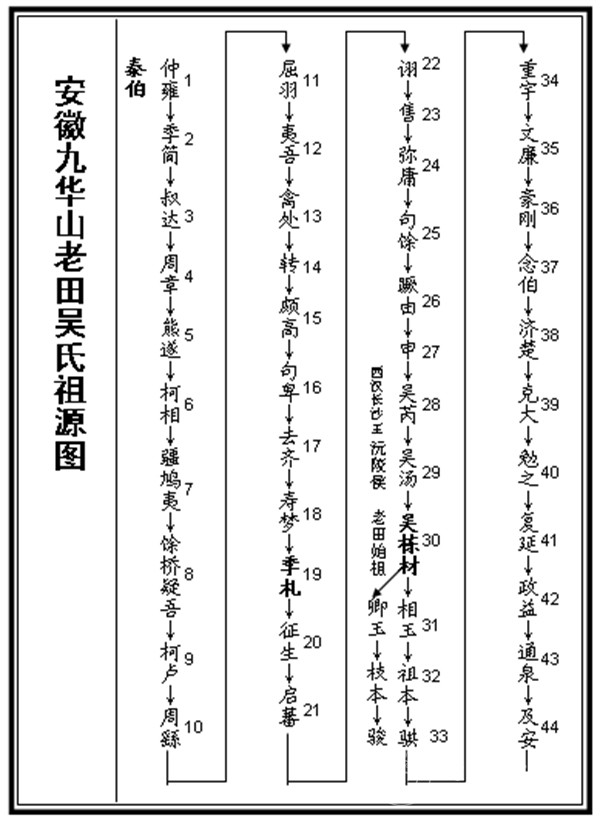 安徽九华山老田吴氏祖源图
泰伯
仲雍 1
季简 2
叔达 3
周章 4
熊遂 5
柯相 6
疆鸠夷 7
馀桥疑吾 8
柯卢 9
周繇 10
屈羽 11
夷吾 12
禽处 13
转 14
颇高 15
句卑 16
去齐 17
寿梦 18
季札 19
征生 20
启蕃 21
诩 22
售 23
弥庸 24
句馀 25
蹶由 26
申 27
吴芮 28
西汉长沙王
吴汤 29
沅陵侯
吴栋材 30
老田始祖
相玉 31
祖本 32
骐 33
卿玉
枝本
骏
重宇 34
文廉 35
豪刚 36
念伯 37
济楚 38
克大 39
勉之 40
复延 41
政益 42
通泉 43
及安 44